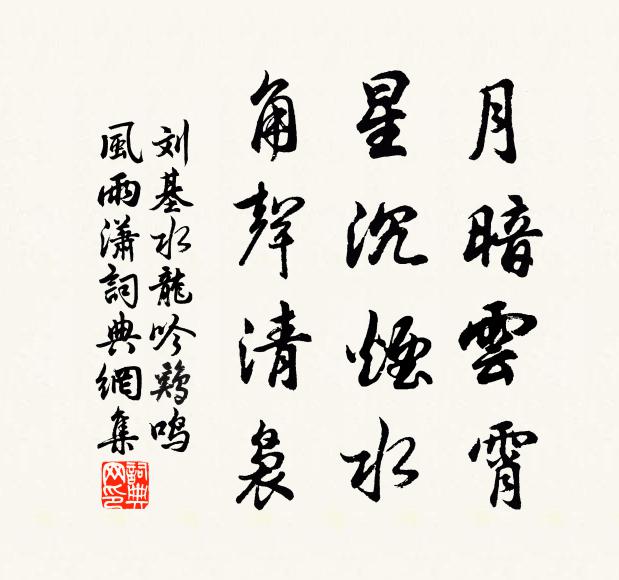 月暗雲霄
星沉煙水
角聲清裊
刘基水龍吟鷄鳴
風雨瀟詞典網集
詞典网印